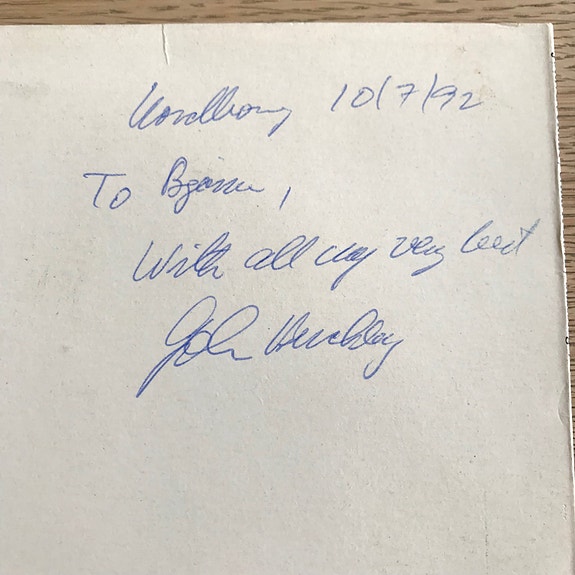 Nordborg 10/7/92
To Bjarne,
With all my very best
John